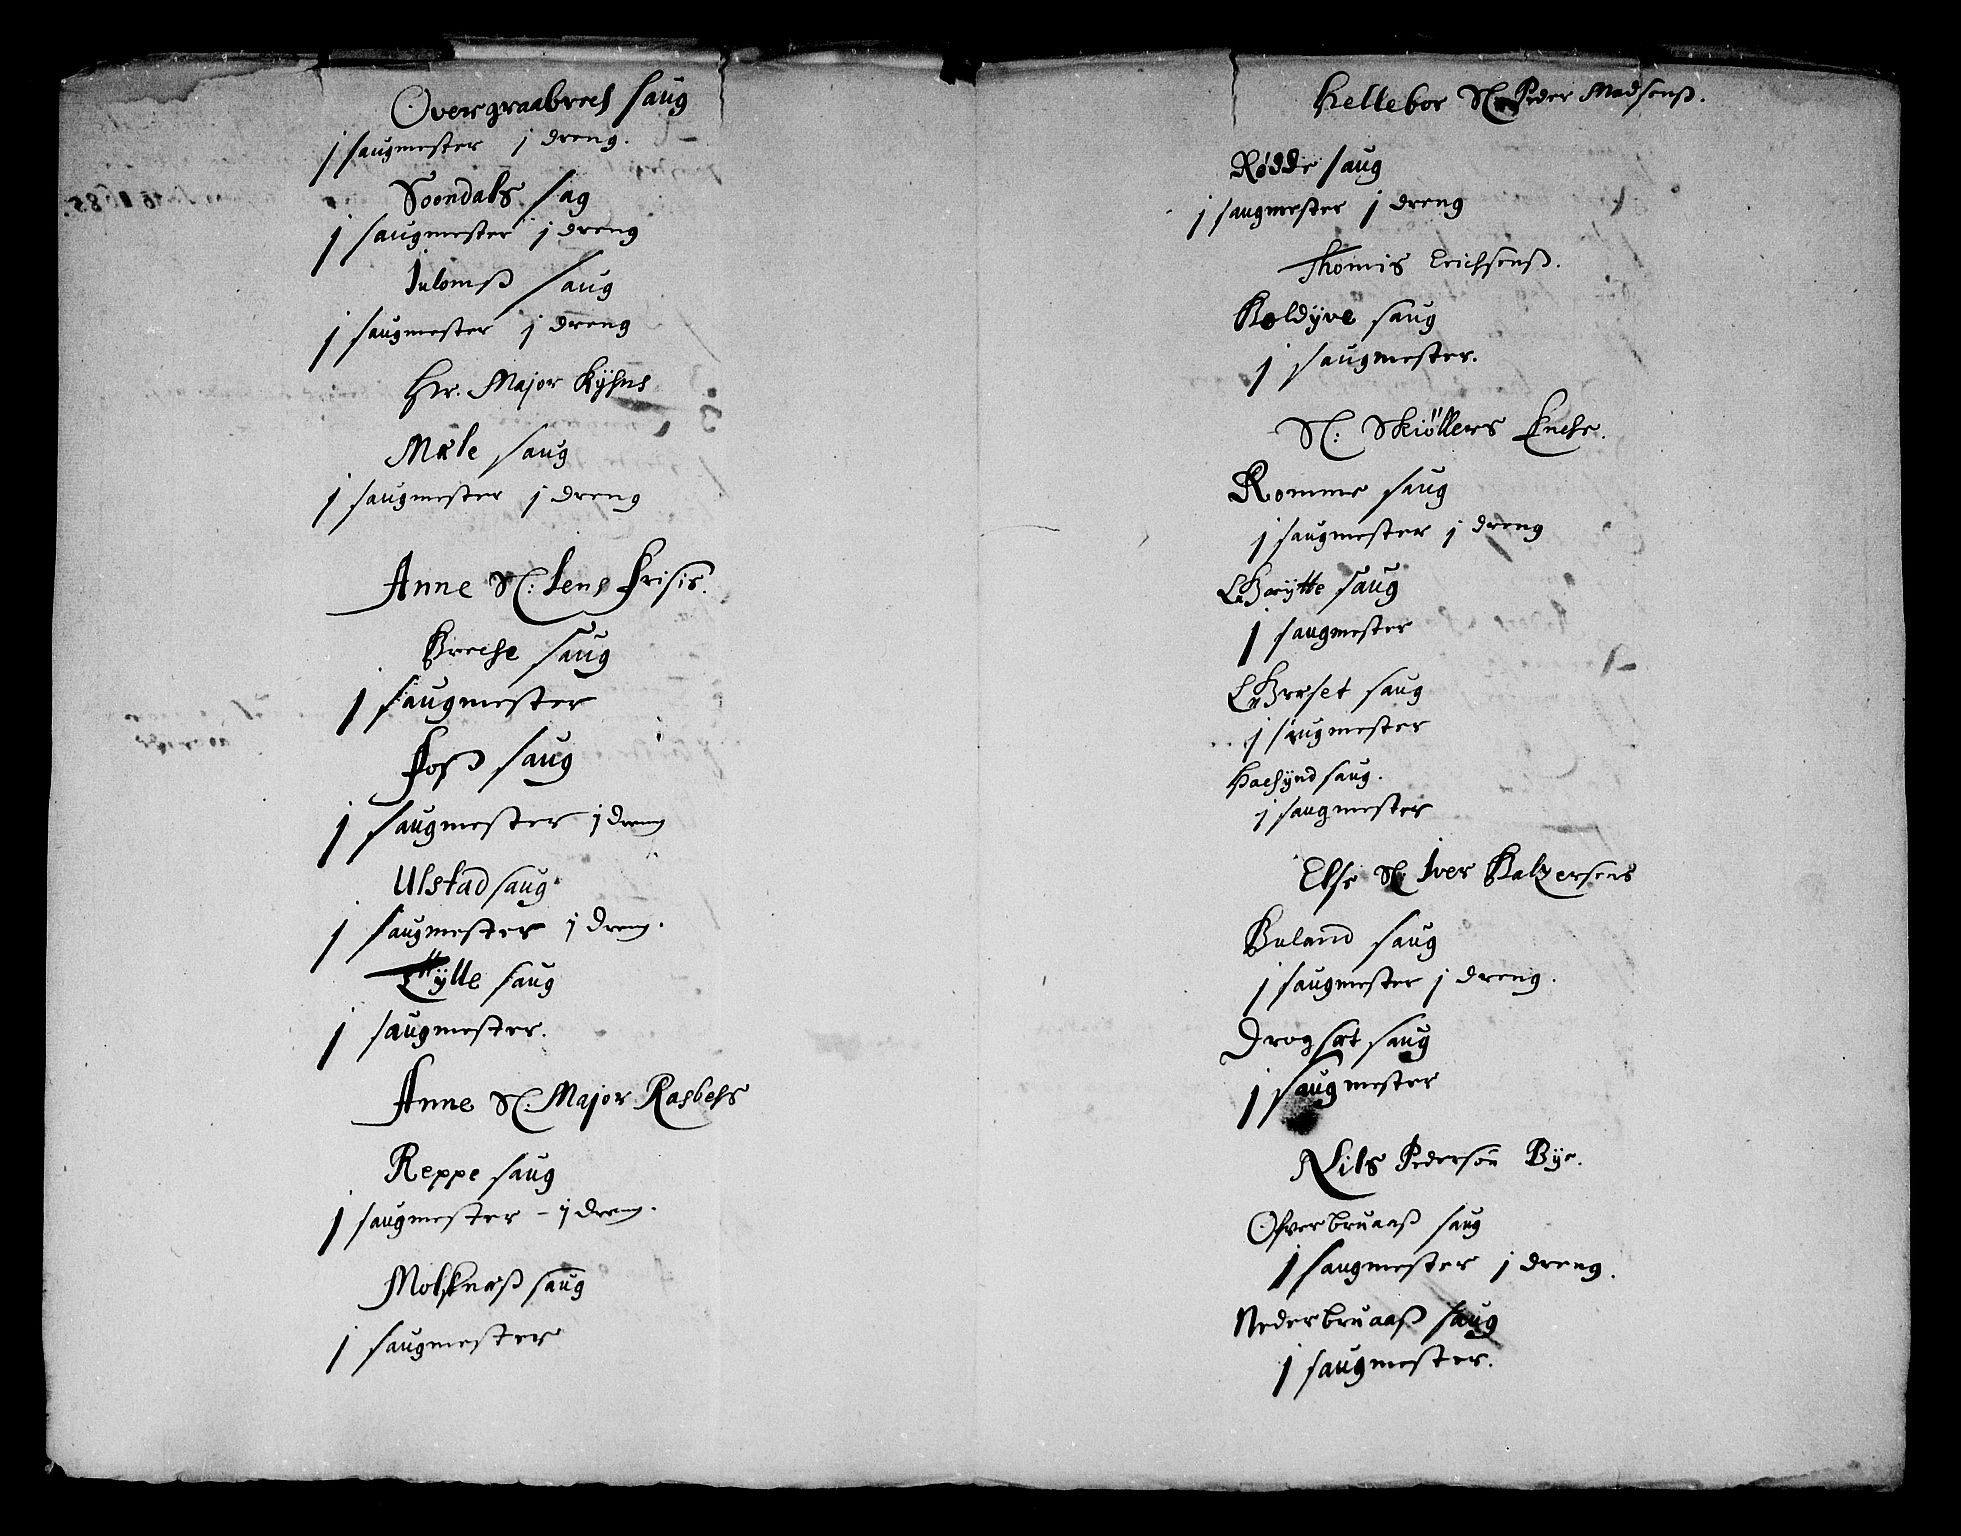 Overgraabrech saug
j saugmester j dreng.
Soondals sag
j saugmester j dreng
Julomß saug
j saugmester j dreng
Hr. Major Kÿhns
Mæle saug
j saugmester j dreng
Anne Sl: Jens Frisis.
Breche saug
j saugmester
Foß saug
j saugmester j dreng
Ulstad saug
j saugmester j dreng.
saug
j saugmester.
Anne Sl: Major Rasbechs
Reppe saug
j saugmester - j dreng.
Molknæß saug
j saugmester
Hellebor Sl: Peder Madsenß.
Rødde saug
j saugmester j dreng
Thomis Erichsenß.
Koldÿve saug
j saugmester.
Sl: Skiøllers Enche.
Romme saug
j saugmester j dreng
saug
j saugmester
saug
j saugmester
Hachÿnd saug.
j saugmester
Else Sl: Iver Baltzersens
Buland saug
j saugmester j dreng.
Drogset saug
j saugmester
Nils Pedersøn Bye.
Ofverbruaaß saug
j saugmester j dreng.
Nederbruaaß saug
j saugmester.